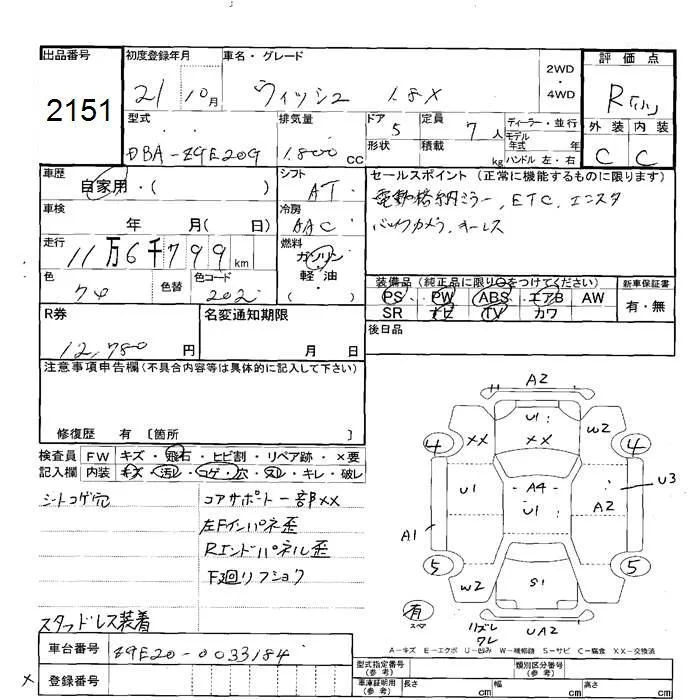 出品番号
2151
初度登録年月
21 10月
車名・グレード
ウィッシュ 1.8X
2WD
・
4WD
評価点
R「小」
型式
DBA-ZGE20G
排気量
1.800cc
ドア
5
定員
7人
形状
積載
kg
ディーラー・並行
モデル
年式 年
ハンドル 左・右
外装 内装
C C
車歴
自家用・( )
シフト
AT
セールスポイント (正常に機能するものに限ります)
電動格納ミラー、ETC、エンスタ
バックカメラ、キーレス
車検
年 月( 日)
冷房
AAC
走行
11万6千799km
燃料
ガソリン
軽油
( )
色
74
色替
色コード
202
装備品 (純正品に限り○をつけてください)
PS PW ABS エアB AW
SR ナビ TV カワ
新車保証書
有・無
R券
12,780円
名変通知期限
月 日
後日品
注意事項申告欄(不具合内容等は具体的に記入して下さい)
修復歴 有 〔箇所 〕
検査員 FW キズ・飛石・ヒビ割・リペア跡・×要
記入欄 内装 キズ・汚レ・コゲ・穴・スレ・キレ・破レ
シートコゲ穴
コアサポート一部XX
左Fインパネ歪
Rエンドパネル歪
F廻リフショウ
スタッドレス装着
車台番号
ZGE20-0033184
登録番号
A2
U1
XX
XX
W2
4
4
U1
A4
U1
A2
U3
A1
5
5
W2
S1
有
スペア
ハズレ
ワレ
UA2
A-キズ E-エクボ U-凹み W-補修跡 S-サビ C-腐食 XX-交換済
型式指定番号
(参考)
類別区分番号
(参考)
車庫証明用
(参考)
長さ cm
幅 cm
高さ cm